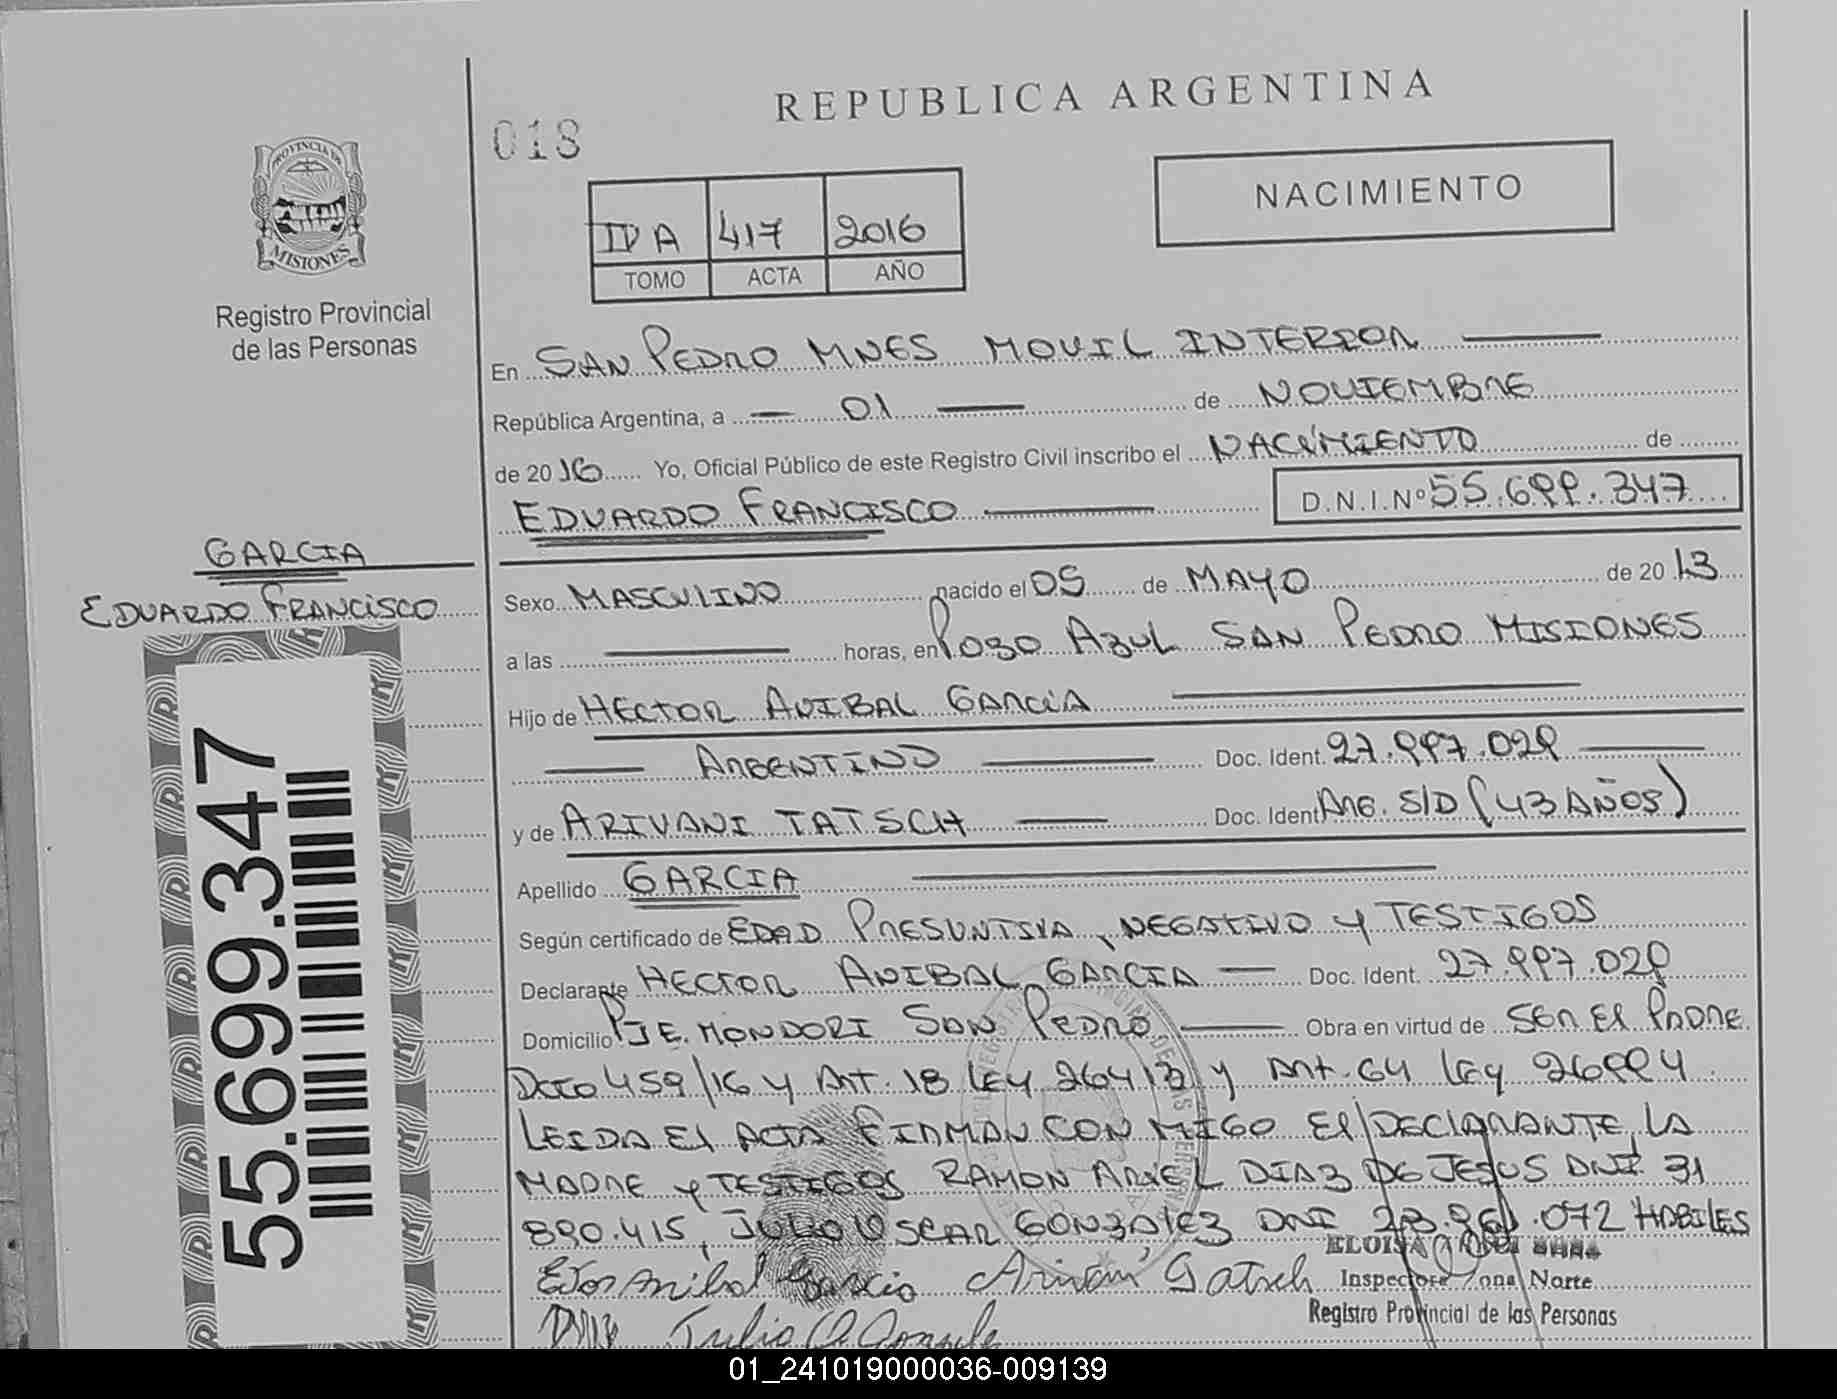 REPUBLICA ARGENTINA
018
NACIMIENTO
PROVINCIA DE
MISIONES
Registro Provincial
de las Personas
IV A 417 2016
TOMO ACTA AÑO
En SAN PEDRO MNES MOVIL INTERIOR
República Argentina, a 01 de NOVIEMBRE
de 2016 Yo, Oficial Público de este Registro Civil inscribo el NACIMIENTO de
EDUARDO FRANCISCO D.N.I.Nº 55.699.347
GARCIA
EDUARDO FRANCISCO
55.699.347
Sexo MASCULINO nacido el 05 de MAYO de 2013
a las horas, en POZO AZUL SAN PEDRO MISIONES
Hijo de HECTOR ANIBAL GARCIA
ARGENTINO Doc. Ident. 27.997.029
y de ARIVANI TATSCH Doc. Ident ARG. S/D (43 AÑOS)
Apellido GARCIA
Según certificado de EDAD PRESUNTIVA, NEGATIVO Y TESTIGOS
Declarante HECTOR ANIBAL GARCIA Doc. Ident. 27.997.029
Domicilio PJE. MONDORI SAN PEDRO Obra en virtud de SER EL PADRE.
DCTO 459/16 Y ART. 18 LEY 26413 Y ART. 64 LEY 26994
LEIDA EL ACTA FIRMAN CON MIGO EL DECLARANTE, LA
MADRE Y TESTIGOS RAMON ARIEL DIAZ DE JESUS DNI 31
890.415, JULIO OSCAR GONZALEZ DNI 28.961.072 HABILES
Anibal Garcia Arivani Tatsch
ELOISA
Inspectora Zona Norte
Registro Provincial de las Personas
Julio O. Gonzale
01_241019000036-009139